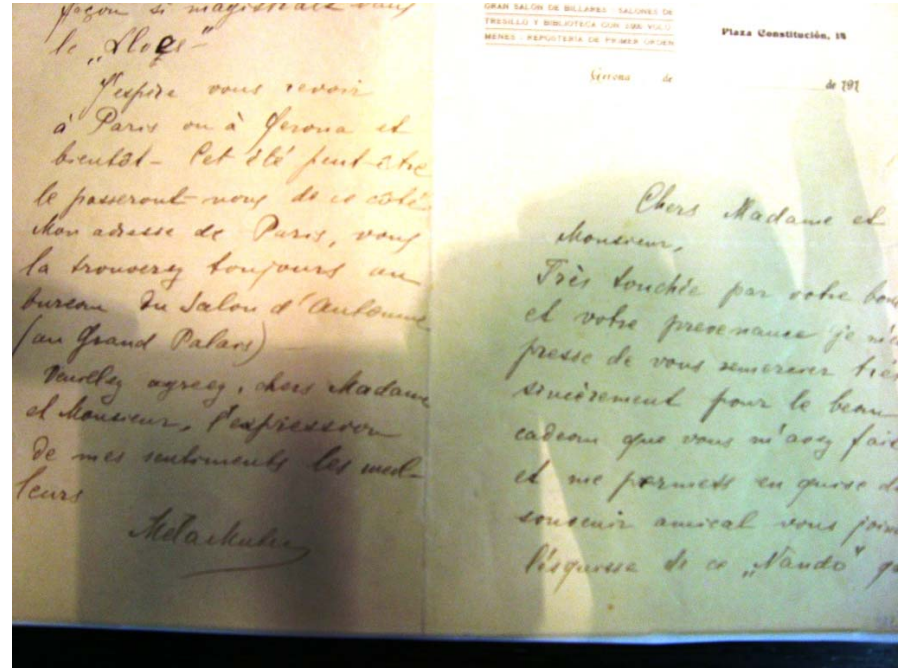 façon si magistrale dans
le „Lloçs"
J'espère vous revoir
à Paris ou à Gerona et
bientôt - Cet été peut-être
le passeront-nous de ce côté.
Mon adresse de Paris, vous
la trouverez toujours au
bureau du Salon d'Automne
(au Grand Palais) -
Veuillez agréez, chers Madame
et Monsieur, l'expression
de mes sentiments les meil-
leurs
GRAN SALÓN DE BILLARES - SALONES DE
TRESILLO Y BIBLIOTECA CON VOLÚ-
MENES - REPOSTERÍA DE PRIMER ORDEN
Plaza Constitución, 14
Gerona de de 191
Chers Madame et
Monsieur,
Très touchée par votre
et votre prévenance je
presse de vous remercier très
sincèrement pour le beau
cadeau que vous m'avez fait
et me permets en guise de
souvenir amical vous
l'esquisse de ce „Nando"